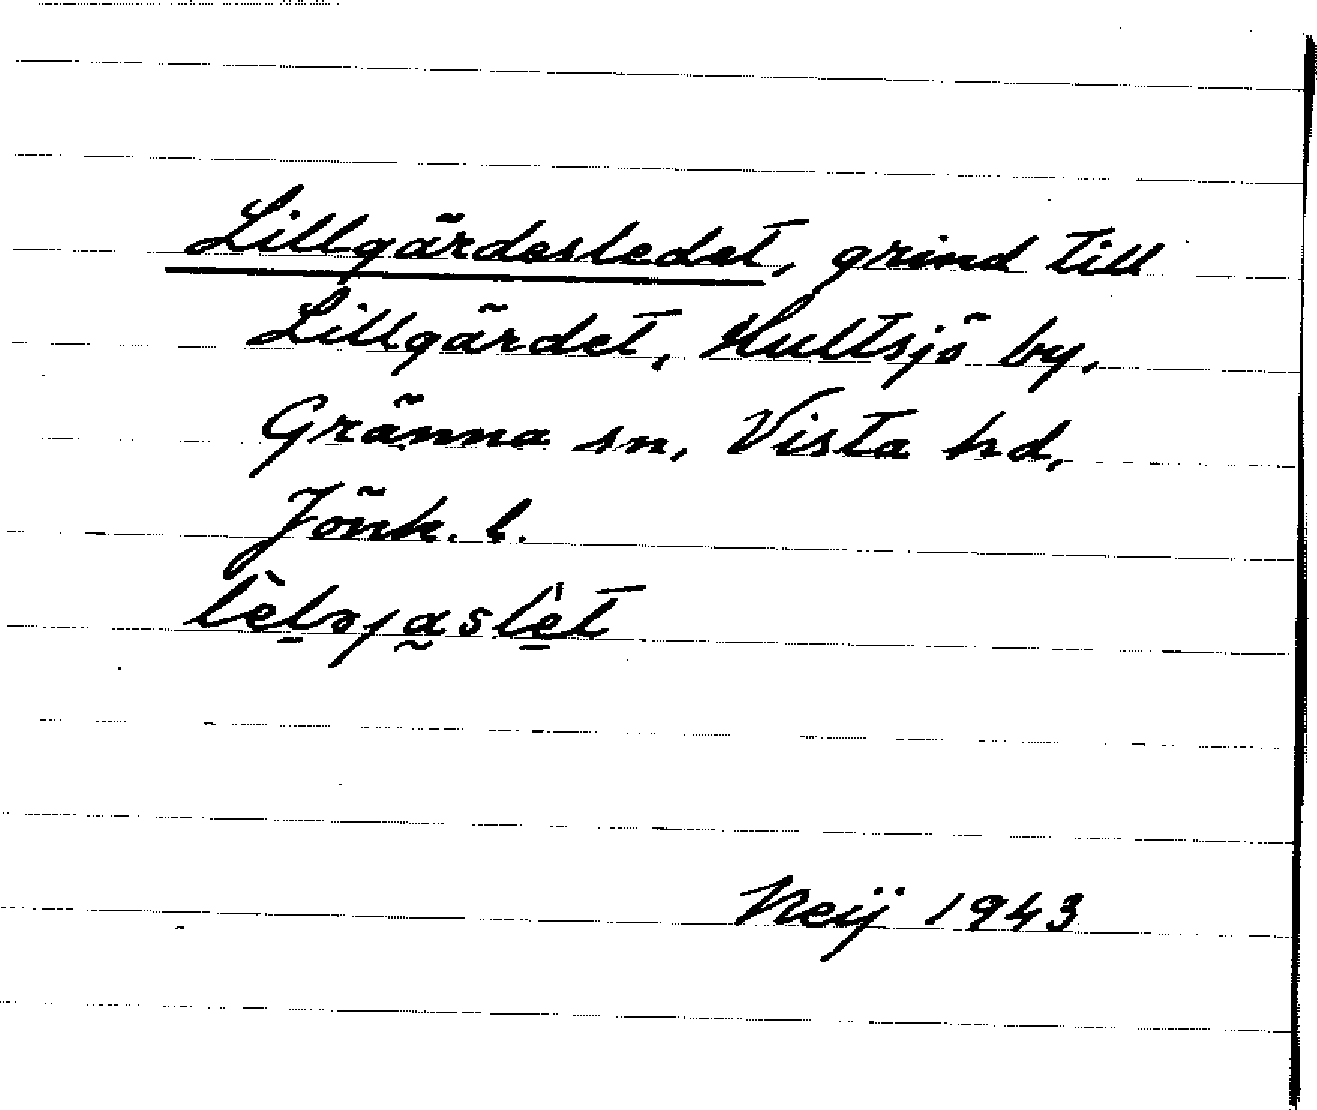 Lillgärdesledet, grind till
Lillgärdet, Hultsjö by,
Gränna sn, Vista hd,
Jönk. l.
Neij 1943